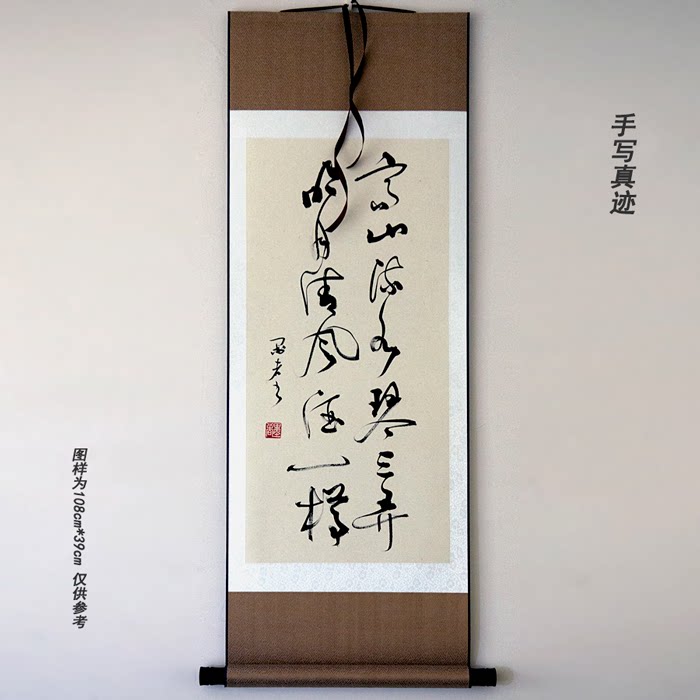 手写真迹
高山流水琴三弄
明月清风酒一樽
图样为108cm*39cm 仅供参考